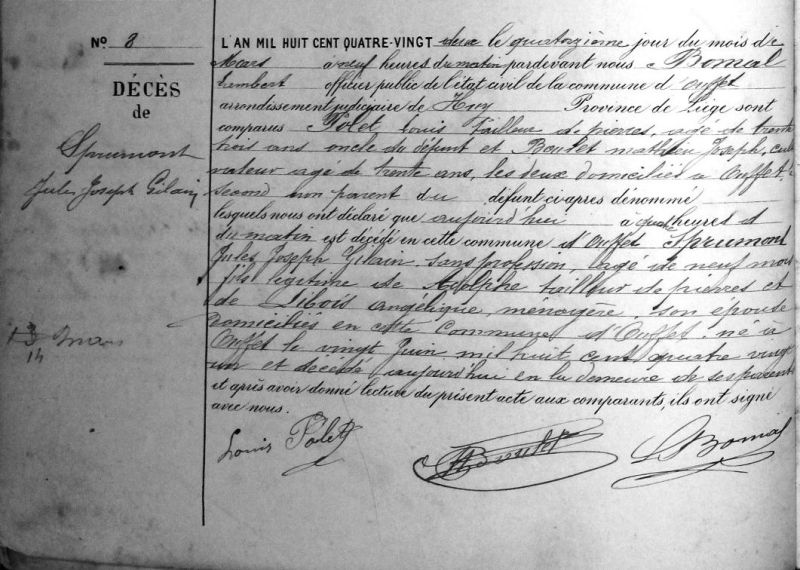 No 8
DÉCÈS
de
Sprumont
Jules Joseph Gilain
13 mars
14
L'AN MIL HUIT CENT QUATRE-VINGT deux le quatorzième jour du mois de
Mars à neuf heures du matin pardevant nous Bomal
Lambert officier public de l'état civil de la commune d'Ouffet
arrondissement judiciaire de Huy Province de Liége sont
comparus Polet, Louis tailleur de pierres, agé de trente
trois ans oncle du défunt et Boulet mathieu Joseph, culti
vateur agé de trente ans, les deux domiciliés à Ouffet, le
second non parent du défunt ci-après dénommé
lesquels nous ont déclaré que aujourd'hui à quatre heures d
du matin est décédé en cette commune d'Ouffet Sprumont
Jules Joseph Gilain sans profession, agé de neuf mois
fils légitime de Adolphe tailleur de pierres et
de Libois angélique, ménagère son épouse
domiciliés en cette Commune d'Ouffet. né à
Ouffet le vingt Juin mil huit cent quatre vingt
un et décédé aujourd'hui en la demeure de ses parents
et après avoir donné lecture du présent acte aux comparants, ils ont signé
avec nous.
Louis Polet
Boulet
L Bomal